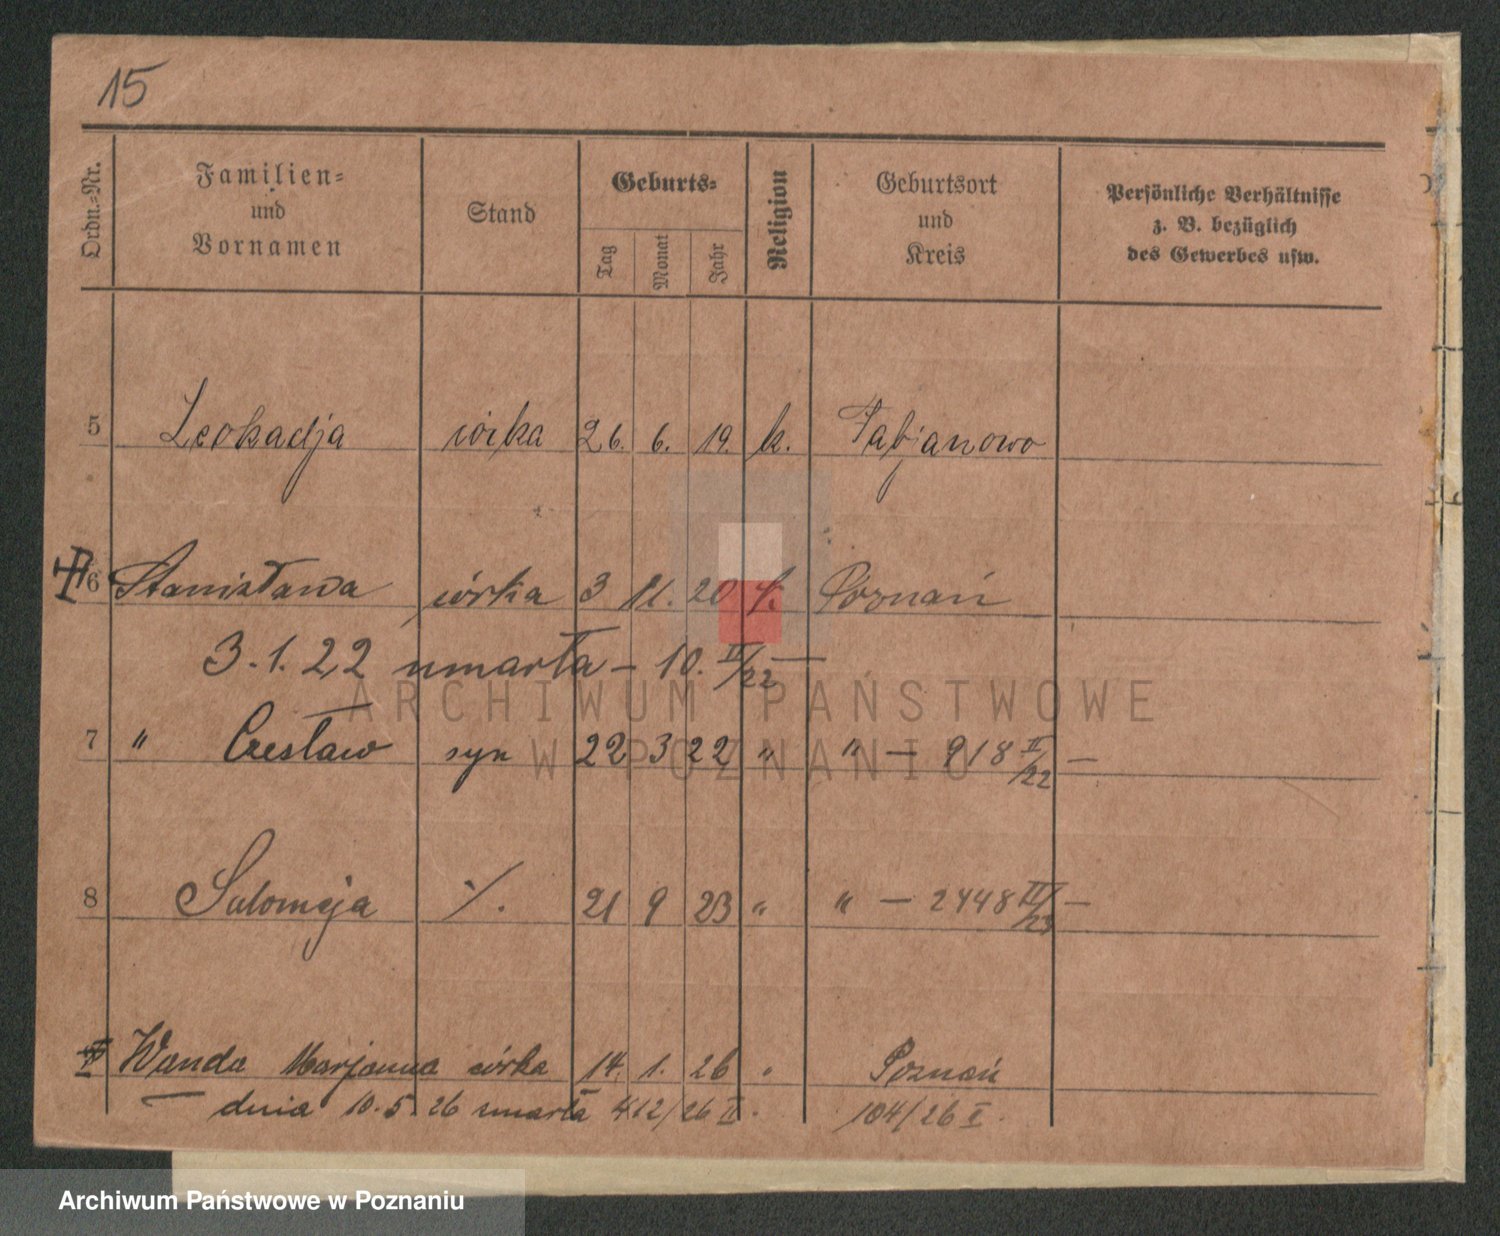 15
Ordn.-Nr.
Familien-
und
Vornamen
Stand
Geburts-
Tag
Monat
Jahr
Religion
Geburtsort
und
Kreis
Persönliche Verhältnisse
z. B. bezüglich
des Gewerbes usw.
5 Leokadja córka 26. 6. 19. k. Fabjanowo
6 Stanisława córka 3 11. 20 k. Poznań
3.1.22 umarła – 10. II/22 —
ARCHIWUM PAŃSTWOWE
W POZNANIU
7 " Czesław syn 22 3 22 " " — 918 II/22 —
8 Salomeja ./. 21 9 23 " " — 2448 III/23 —
Wanda Marjanna córka 14. 1. 26 " Poznań
— dnia 10.5.26 umarła 412/26 II. 104/26 I.
Archiwum Państwowe w Poznaniu